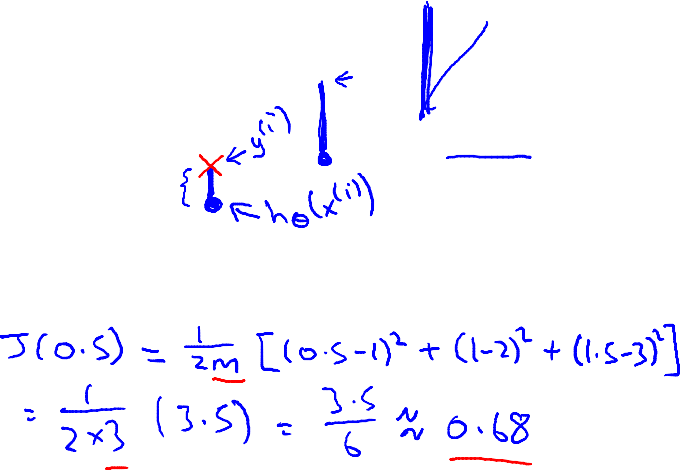 y^(i)
h_θ(x^(i))
J(0.5) = 1/2m [(0.5-1)² + (1-2)² + (1.5-3)²]
= 1/2×3 (3.5) = 3.5/6 ≈ 0.68